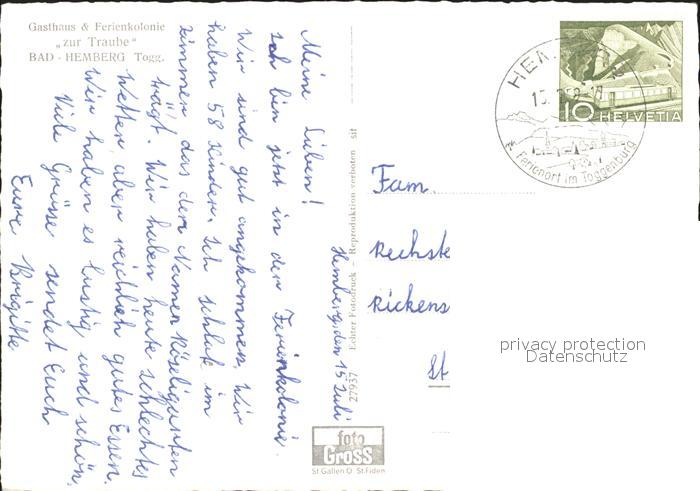 Gasthaus & Ferienkolonie
„zur Traube“
BAD - HEMBERG Togg.
Hemberg, den 15 Juli
Meine Lieben!
Ich bin jetzt in der Ferienkolonie.
Wir sind gut angekommen, wir
haben 58 Kinder. Ich schlafe im
zimmer das den Namen Röseligarten
trägt. Wir haben heute schlechtes
Wetter aber reichlich gutes Essen.
Wir haben es lustig und schön.
Viele Grüsse sendet Euch
Eure Brigitte
27937 Echter Fotodruck - Reproduktion verboten stf
foto
Gross
St Gallen O St.Fiden
Fam.
Rechste
Rickens
St
HELVETIA
10
Ferienort im Toggenburg
privacy protection
Datenschutz